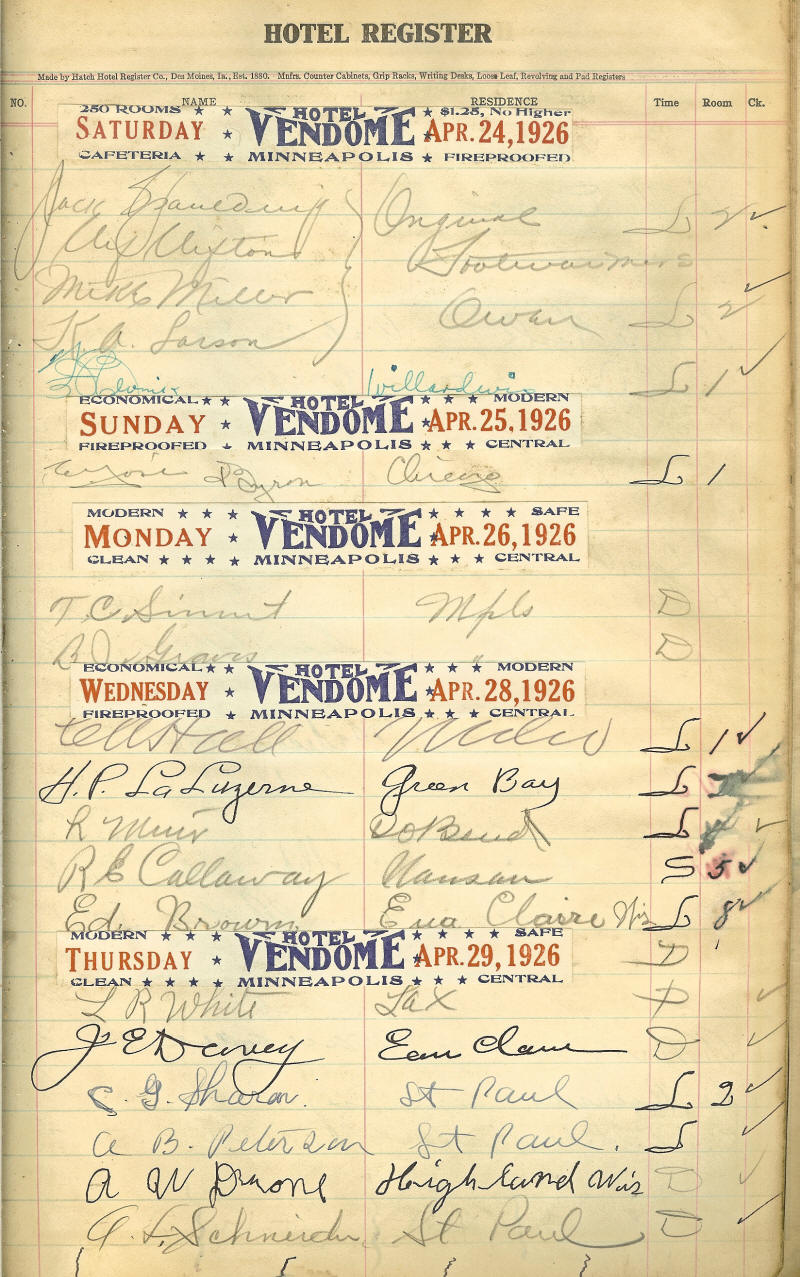 HOTEL REGISTER
Made by Hatch Hotel Register Co., Des Moines, Ia., Est. 1880. Mnfrs. Counter Cabinets, Grip Racks, Writing Desks, Loose Leaf, Revolving and Pad Registers
NO. NAME RESIDENCE Time Room Ck.
250 ROOMS ★ ★ HOTEL ★ $1.25, No Higher
SATURDAY ★ VENDOME ★ APR. 24, 1926
CAFETERIA ★ ★ MINNEAPOLIS ★ FIREPROOFED
Jack Original L 2 ✓
Footwarmers
Mike Miller L 2 ✓
K. A. Larson Owen
L 1 ✓
ECONOMICAL ★ ★ HOTEL ★ ★ ★ MODERN
SUNDAY ★ VENDOME ★ APR. 25, 1926
FIREPROOFED ★ MINNEAPOLIS ★ ★ ★ CENTRAL
Byron Chicago L 1
MODERN ★ ★ ★ HOTEL ★ ★ ★ ★ SAFE
MONDAY ★ VENDOME APR. 26, 1926
CLEAN ★ ★ ★ ★ MINNEAPOLIS ★ ★ ★ CENTRAL
T. C. Sinnut Mpls D
B. J. Graves " D
ECONOMICAL ★ ★ HOTEL ★ ★ ★ MODERN
WEDNESDAY ★ VENDOME ★ APR. 28, 1926
FIREPROOFED ★ MINNEAPOLIS ★ ★ ★ CENTRAL
Hall L 1 ✓
H. P. LaLuzerne Green Bay L
R Muir So Bend L ✓
R E Callaway Wausau S 5 ✓
Ed. Brown Eua Claire Wis L 8 ✓
MODERN ★ ★ ★ HOTEL ★ ★ ★ ★ SAFE
THURSDAY ★ VENDOME ★ APR. 29, 1926
CLEAN ★ ★ ★ ★ MINNEAPOLIS ★ ★ ★ CENTRAL
D
L R White Lax D ✓
J E Davey Eau Claire D ✓
C. G. Sharon. St Paul L 2 ✓
A B. Peterson St Paul. L ✓
A W Highland Wis D ✓
A. L. Schneider St Paul D ✓